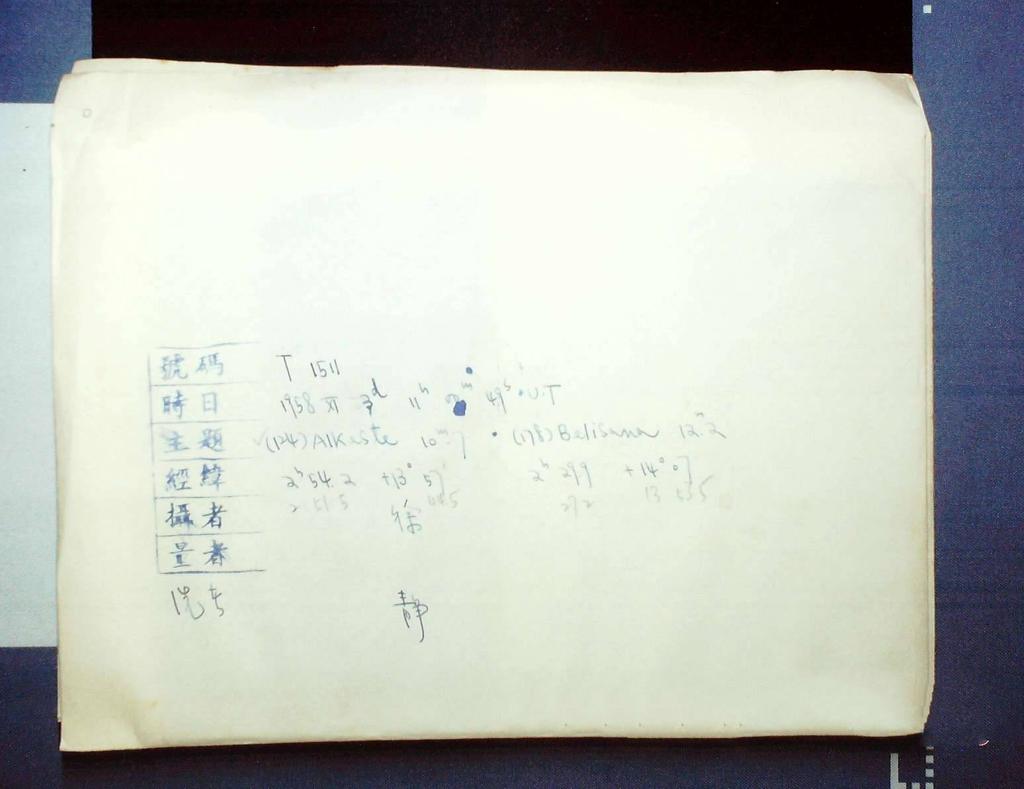 號碼 T 1511
時日 1958 XI 3d 11h m 49s U.T
主題 (124) Alkeste 10m.7 (178) Belisana 12m.2
經緯 2h 54.2 +13° 57' 2h 29.9 +14° 07'
2 51.5 44.5 27.2 13 53.5
攝者 徐
量者
洗者 靜